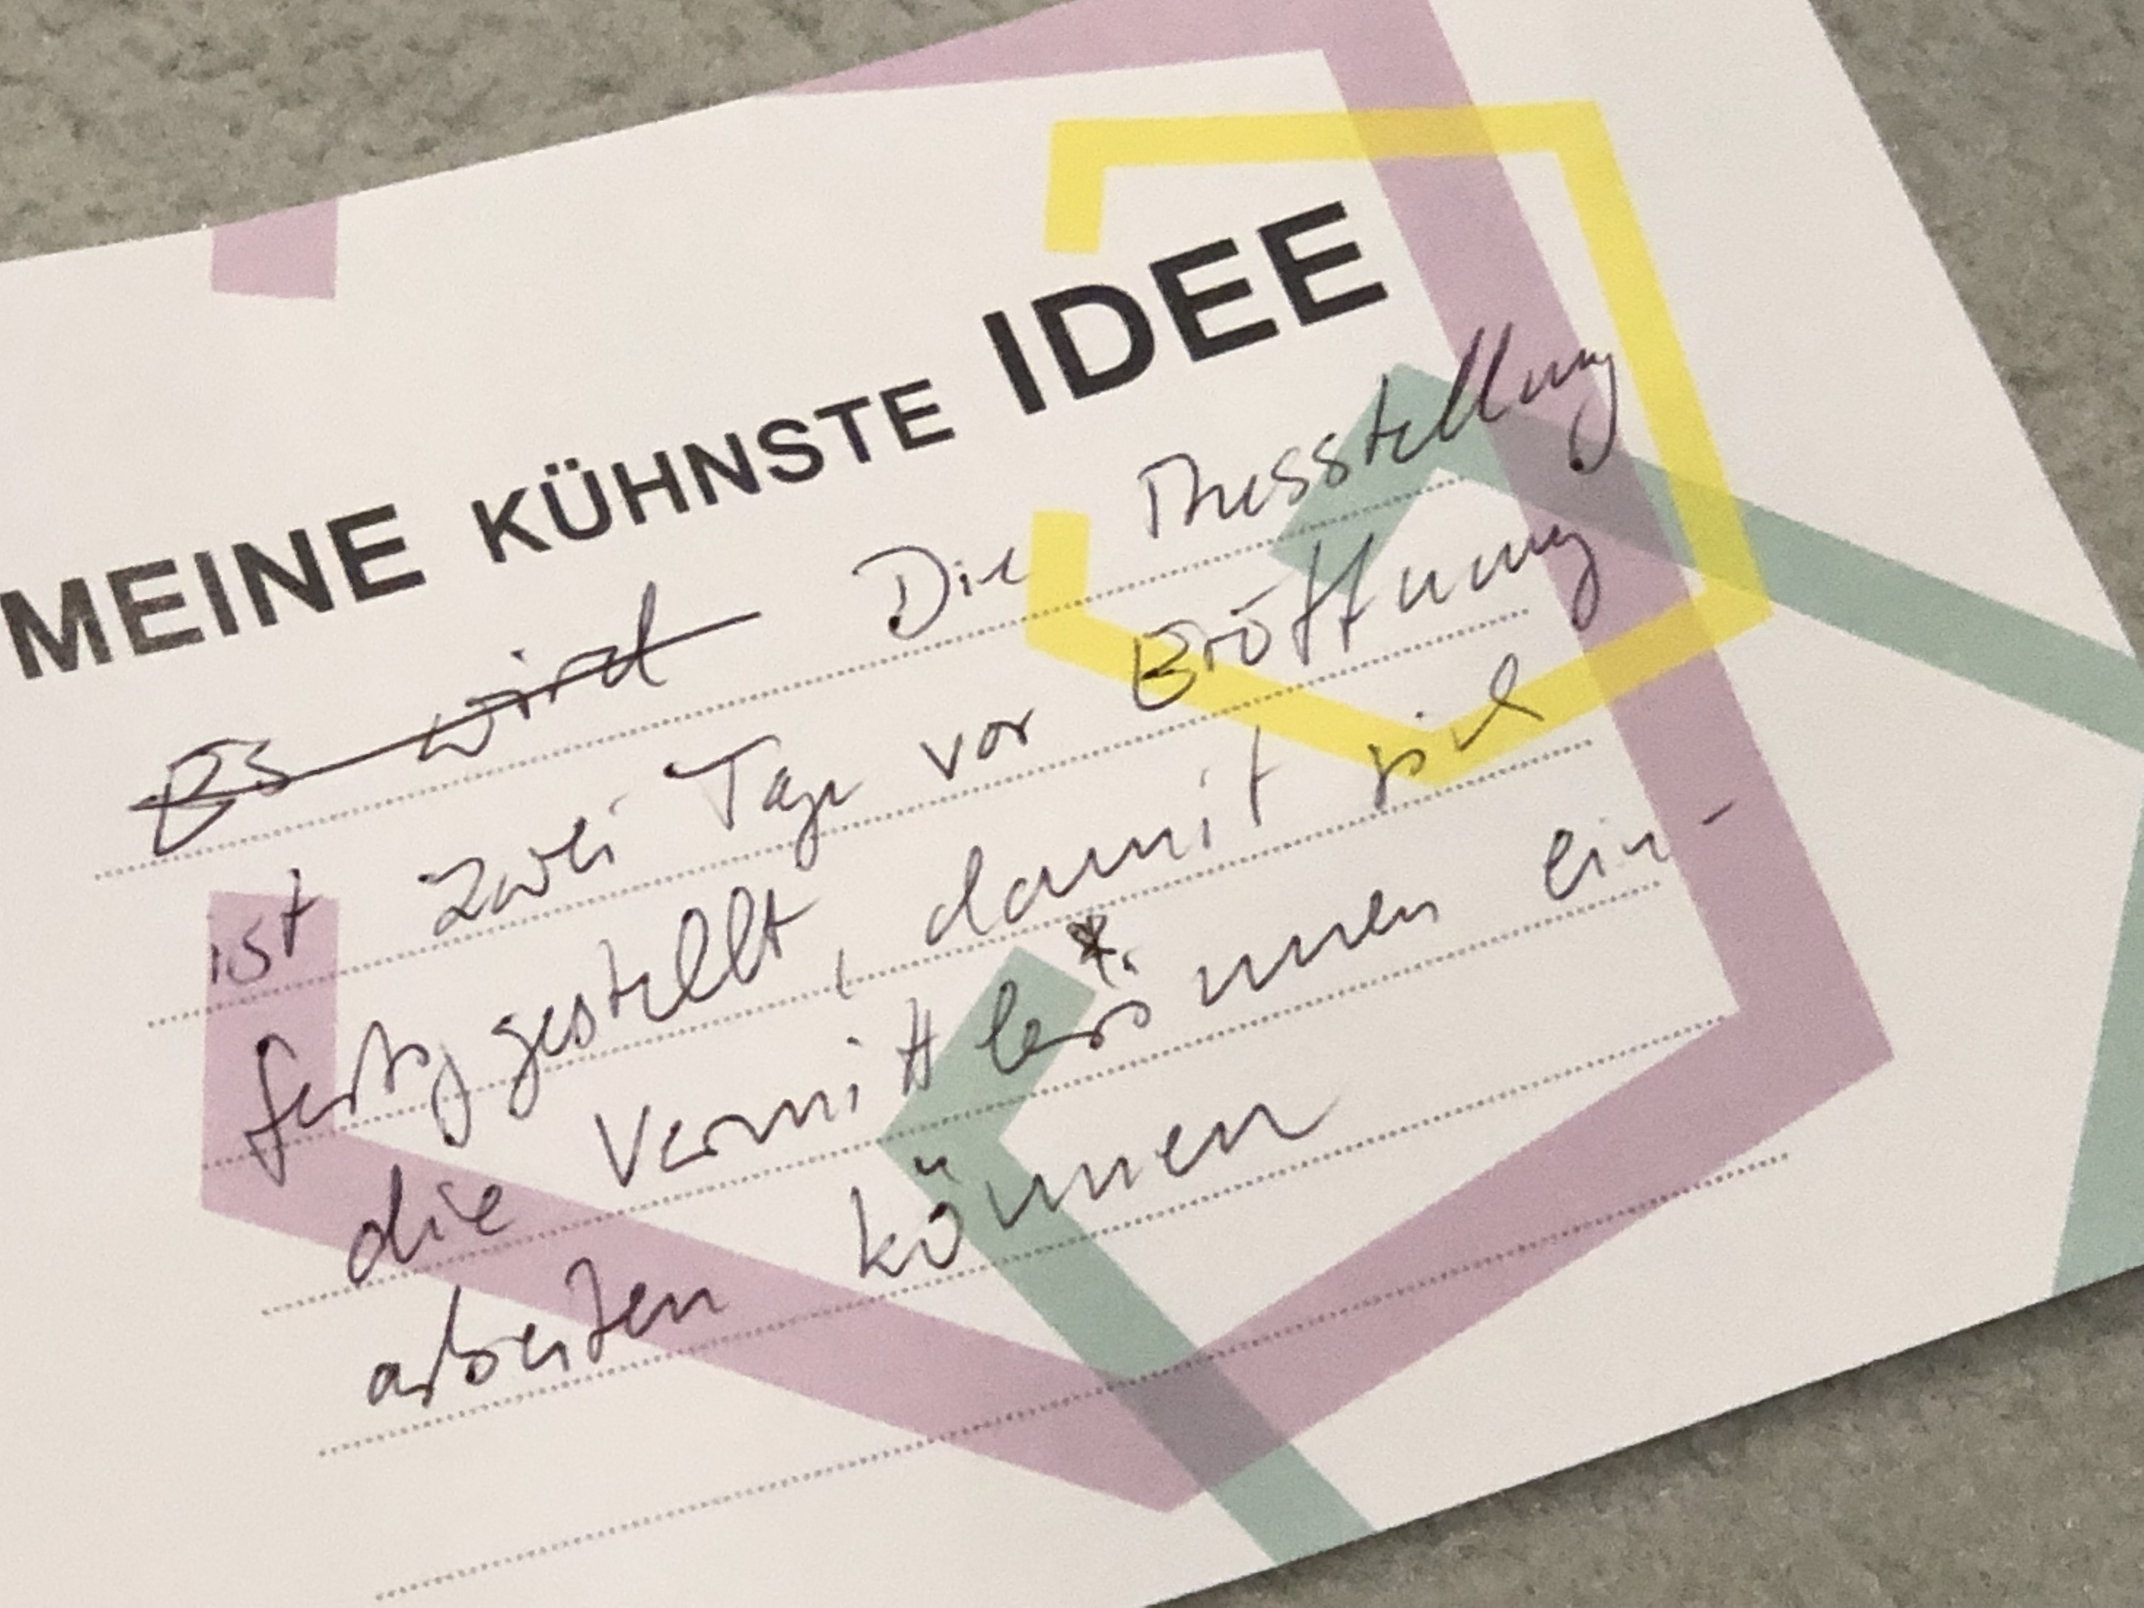 MEINE KÜHNSTE IDEE
Es wird Die Ausstellung
ist zwei Tage vor Eröffnung
fertiggestellt, damit sich
die Vermittler*innen ein-
arbeiten können